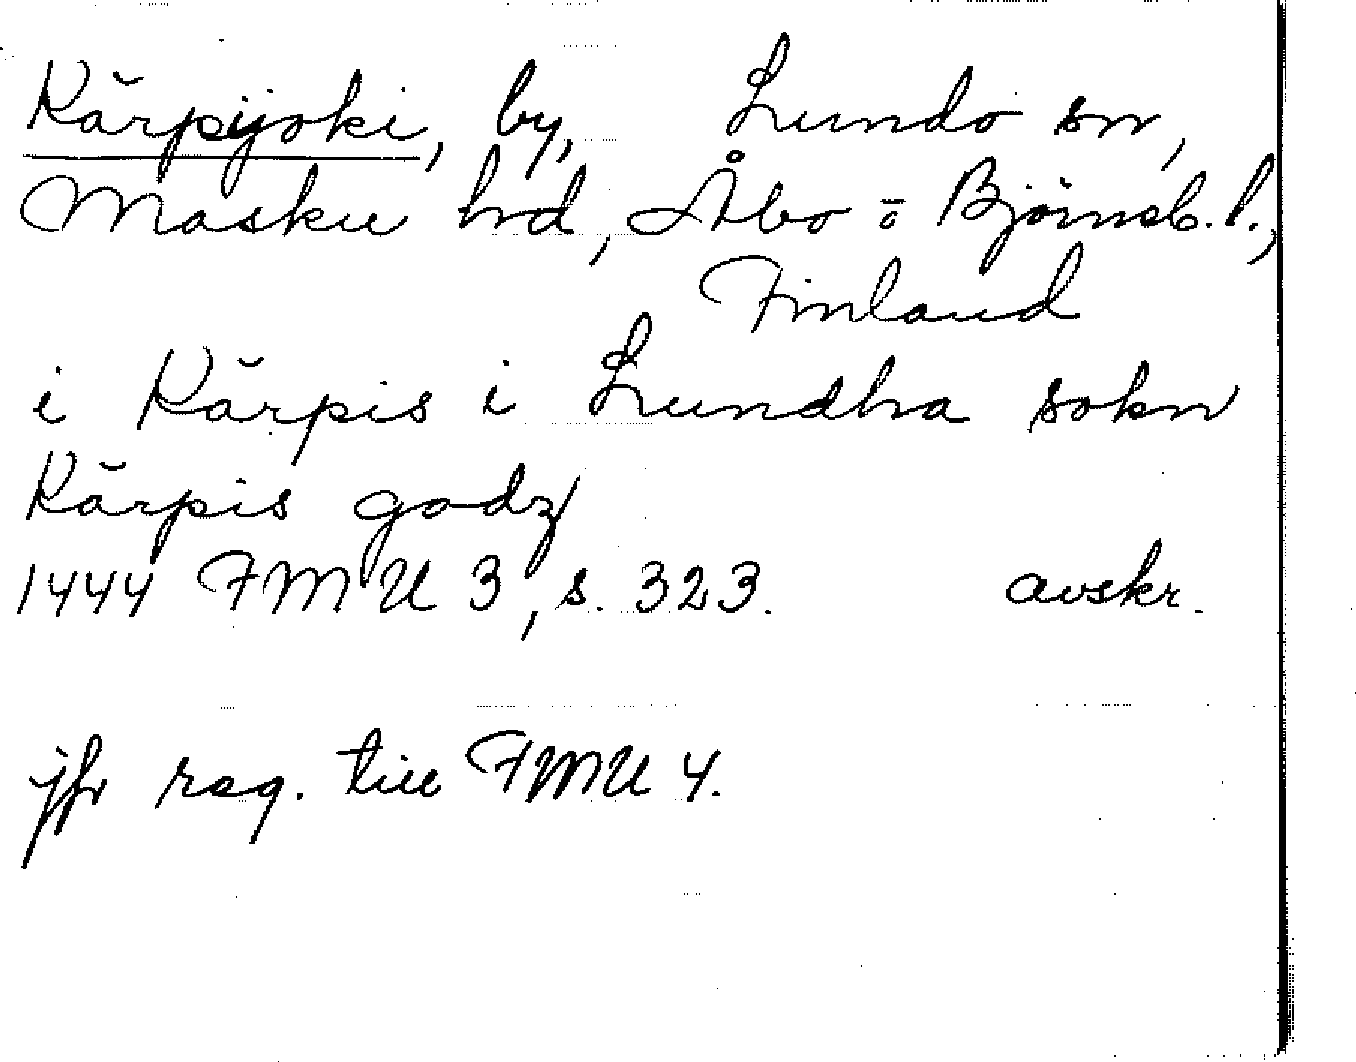 Kärpijoki, by, Lundo sn,
Masku hd, Åbo o Björneb. l.,
Finland
i Kärpis i Lundha sokn
Kärpis godz
1444 FMU 3, s. 323. avskr.
jfr reg. till FMU 4.